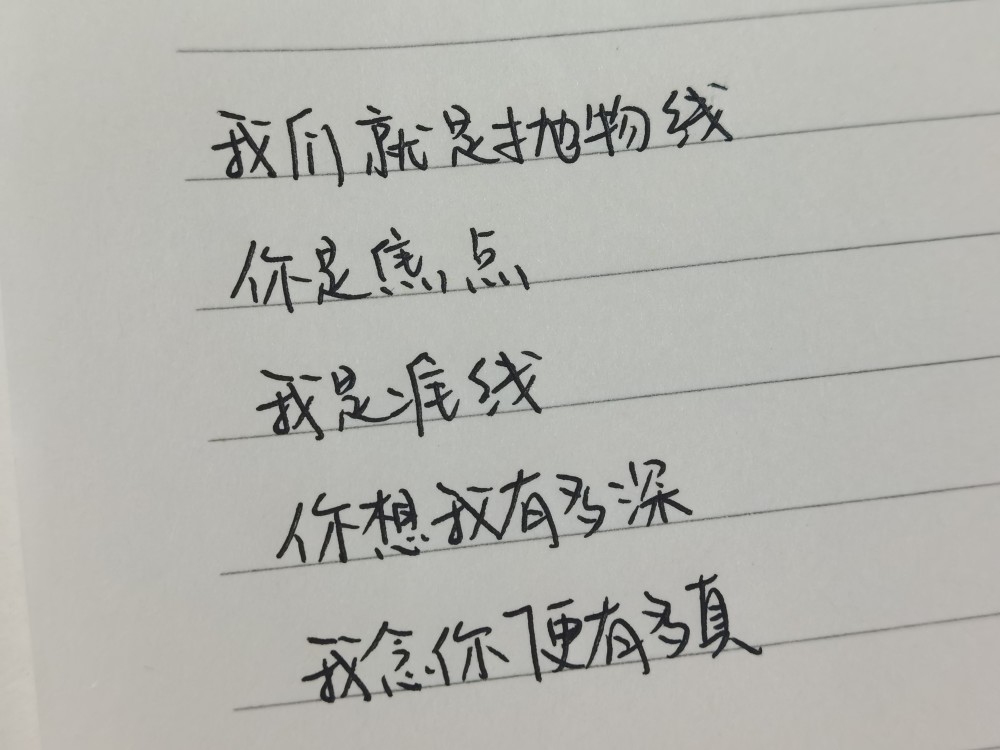 我们就是抛物线
你是焦点
我是准线
你想我有多深
我念你便有多真